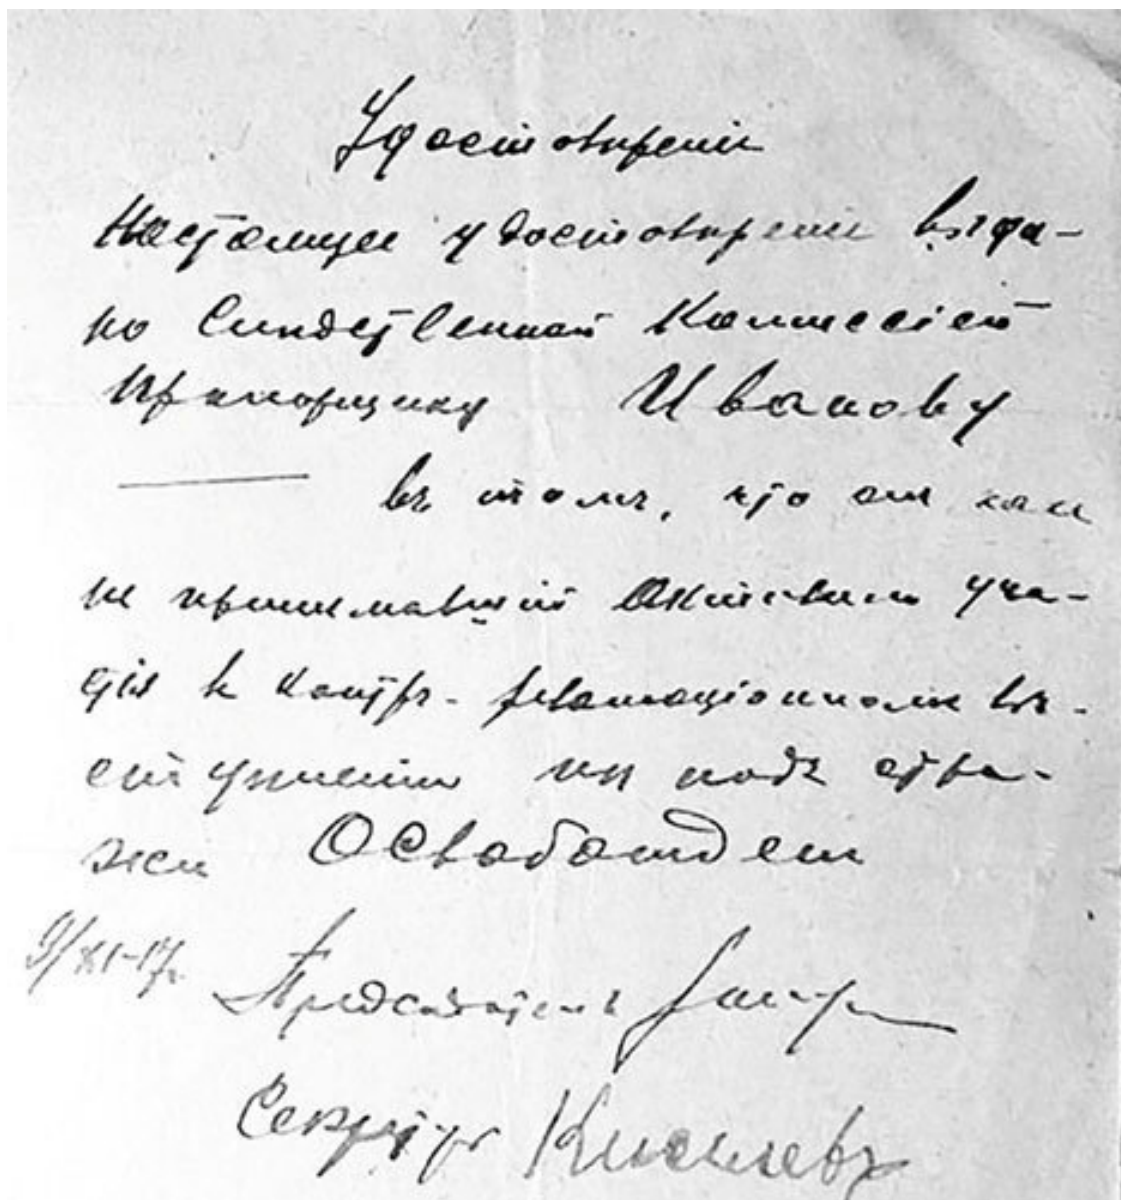 Удостовѣреніе
Настоящее удостовѣреніе выда-
но Слѣдственной Комиссіей
Прапорщику Иванову
въ томъ, что онъ как
не принимавшій активнаго уча-
стія в контръ-революціонномъ вы-
ступленіи из подъ стра-
жи Освобожден
9/XI-17г.
Предсѣдатель
Секретарь Киселевъ